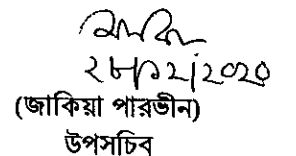 ২৮/১২/২০২০
(জাকিয়া পারভীন)
উপসচিব